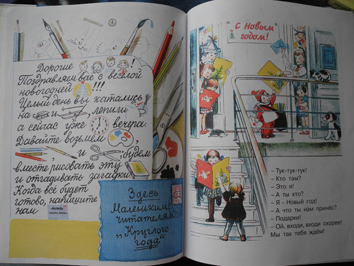 Дорогие
Поздравляем вас с весёлой
новогодней !!!
Целый день вы катались
на и , лепили
а сейчас уже вечера.
Давайте возьмём ,
, и , будем
вместе рисовать эту
и отгадывать загадки.
Когда всё будет
готово, напишите
нам
Здесь
Маленьким
читателям
„Круглого
года"
С Новым
годом!
– Тук-тук-тук!
– Кто там?
– Это я!
– А ты кто?
– Я – Новый год!
– А что ты нам принёс?
– Подарки!
– Ой, входи, входи скорее!
Мы так тебя ждём!